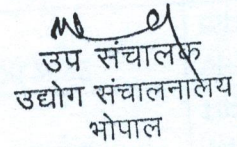 उप संचालक
उद्योग संचालनालय
भोपाल